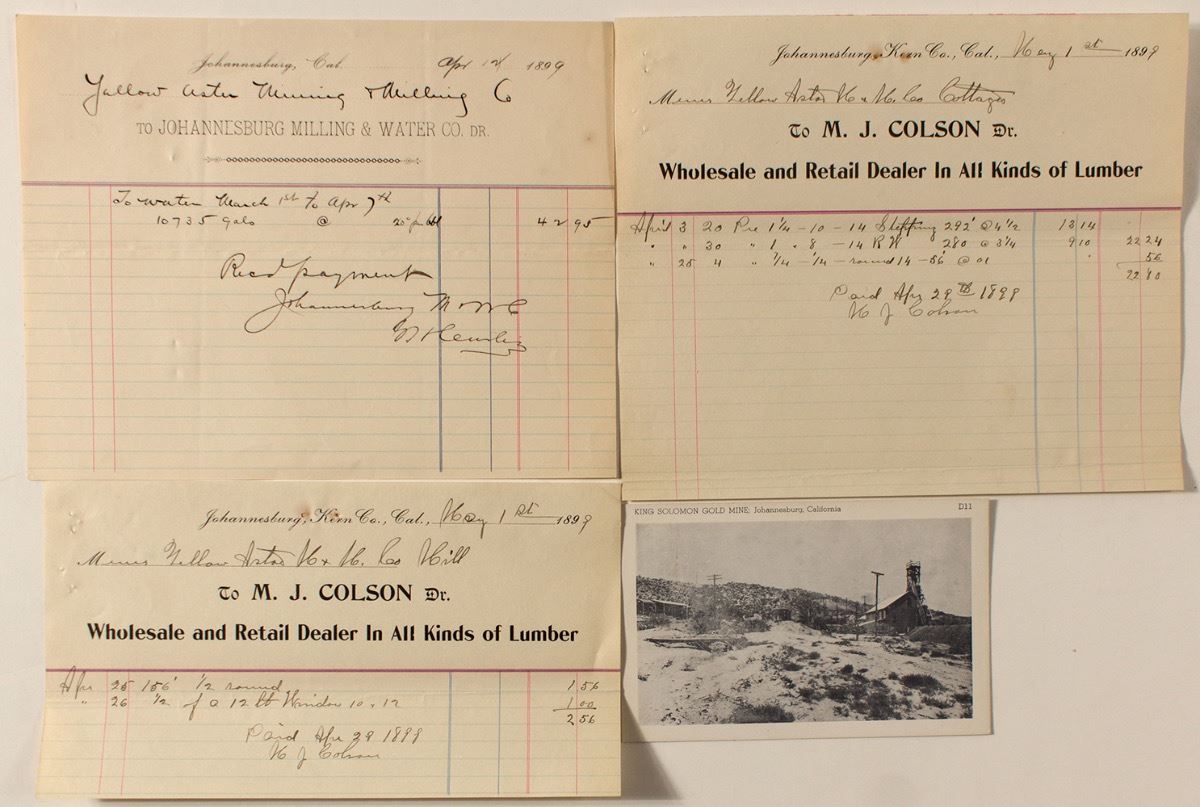 Johannesburg, Cal. Apr 12 1899
Yallow Aster Mining & Milling Co
TO JOHANNESBURG MILLING & WATER CO. DR.
To water March 1st to Apr 7th
10735 gals @ 42 95
Recd payment
Johannesburg M & W C
Johannesburg, Kern Co., Cal., May 1st 1899
Mess Yellow Aster M & M. Co Cottages
To M. J. COLSON Dr.
Wholesale and Retail Dealer In All Kinds of Lumber
April 3 20 Pce 1 1/4 - 10 - 14 Stepping 292' @ 4 1/2 13 14
" " 30 " 1 " 8 - 14 R W 280 @ 3 1/4 9 10 22 24
" 25 4 " 1/4 - 1/4 - round 14 - 56' @ 01 56
22 80
Paid Apr 29th 1899
M J Colson
Johannesburg, Kern Co., Cal., May 1st 1899
Mess Yellow Aster M & M. Co Mill
To M. J. COLSON Dr.
Wholesale and Retail Dealer In All Kinds of Lumber
Apr 25 156' 1/2 round 1 56
" 26 1/2 of a 12 lt Window 10 x 12 1 00
2 56
Paid Apr 29 1899
M J Colson
KING SOLOMON GOLD MINE; Johannesburg, California D11